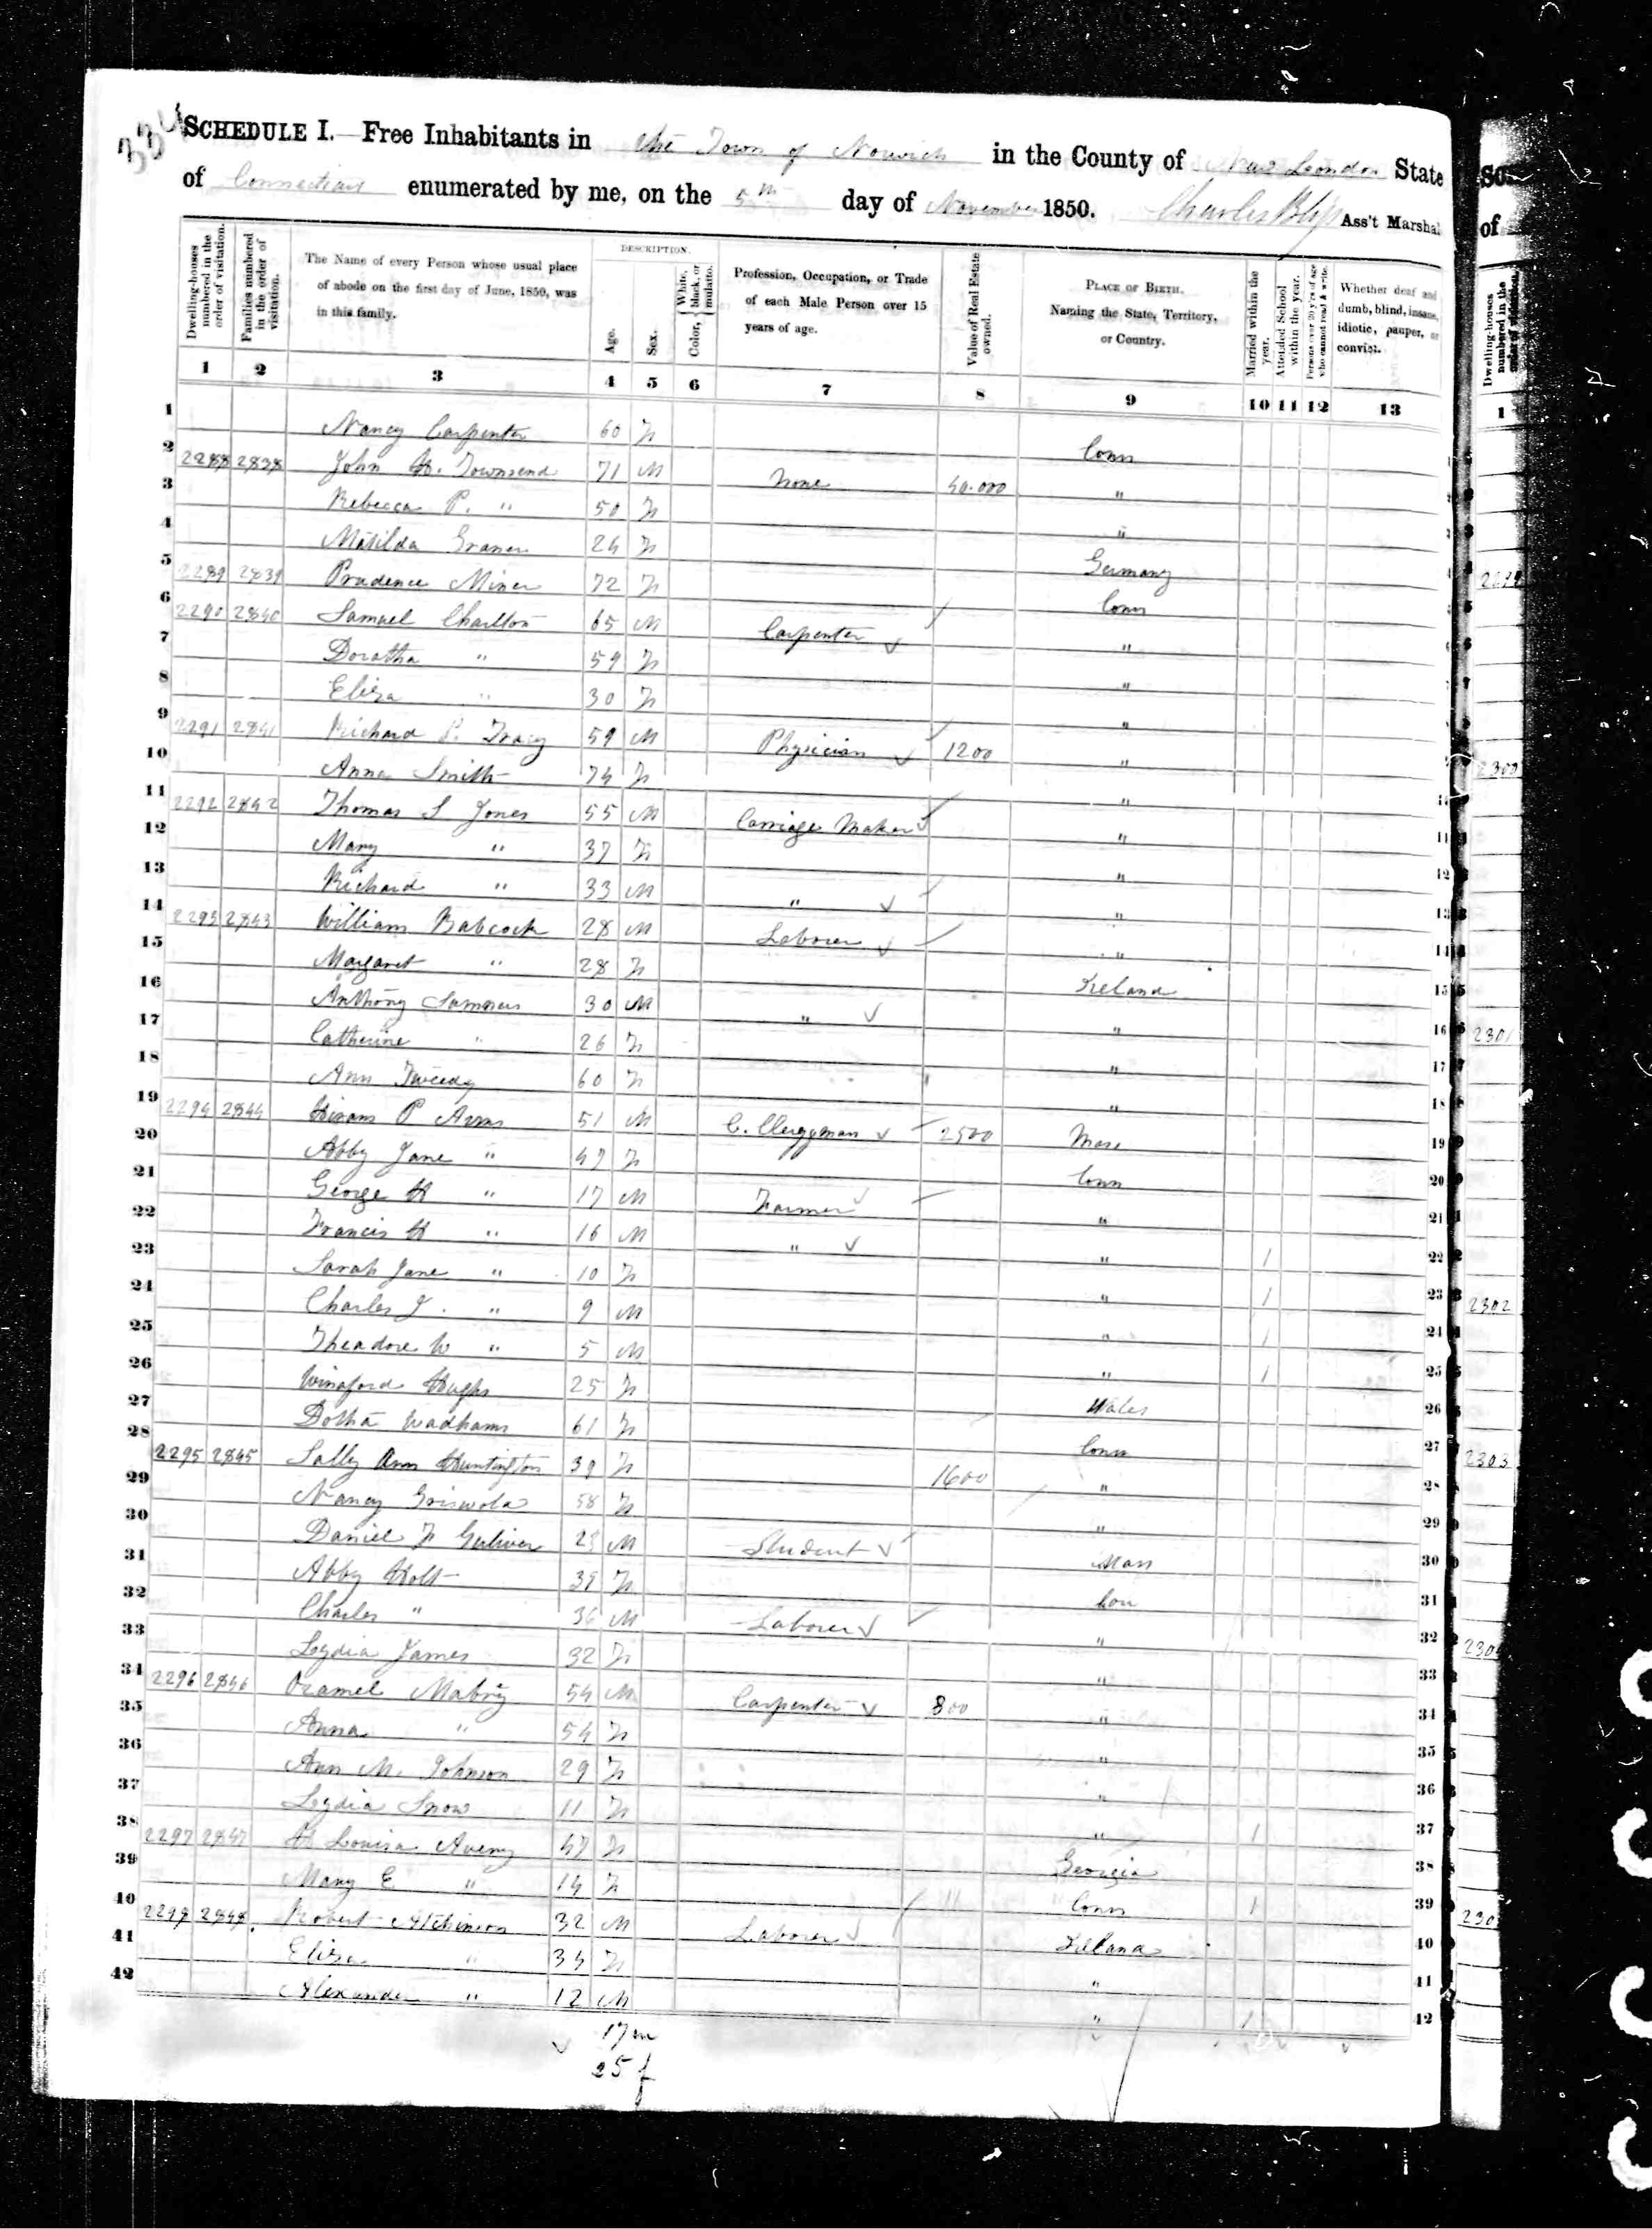 334
SCHEDULE I.—Free Inhabitants in the Town of Norwich in the County of New London State
of Connecticut enumerated by me, on the 5th day of November 1850. Charles Bliss Ass't Marshal
Dwelling-houses numbered in the order of visitation.
Families numbered in the order of visitation.
The Name of every Person whose usual place of abode on the first day of June, 1850, was in this family.
DESCRIPTION.
Age.
Sex.
Color, { White, black, or mulatto.
Profession, Occupation, or Trade of each Male Person over 15 years of age.
Value of Real Estate owned.
PLACE OF BIRTH. Naming the State, Territory, or Country.
Married within the year.
Attended School within the year.
Persons over 20 y'rs of age who cannot read & write.
Whether deaf and dumb, blind, insane, idiotic, pauper, or convict.
1 2 3 4 5 6 7 8 9 10 11 12 13
1 Nancy Carpenter 60 F Conn
2 2288 2838 John H. Townsend 71 M None 40.000 "
3 Rebecca P. " 50 F "
4 Matilda 24 F Germany
5 2289 2839 Prudence Miner 72 F Conn
6 2290 2840 Samuel Charlton 65 M Carpenter "
7 Doratha " 59 F "
8 Eliza " 30 F "
9 2291 2841 Richard P. Tracy 59 M Physician 1200 "
10 Anna Smith 74 F "
11 2292 2842 Thomas S Jones 55 M Carriage Maker "
12 Mary " 37 F "
13 Richard " 33 M " "
14 2293 2843 William Babcock 28 M Laborer "
15 Margaret " 28 F Ireland
16 Anthony 30 M " "
17 Catherine " 26 F "
18 Ann Tweedy 60 F "
19 2294 2844 Hiram P Arms 51 M C. Clergyman 2500 Mass
20 Abby Jane " 47 F Conn
21 George H " 17 M Farmer "
22 Francis H " 16 M " " 1
23 Sarah Jane " 10 F " 1
24 Charles J. " 9 M " 1
25 Theadore W " 5 M " 1
26 Winaford Hughs 25 F Wales
27 Dotha Wadhams 61 F Conn
28 2295 2845 Sally Ann Huntington 39 F 1600 "
29 Nancy Griswold 58 F "
30 Daniel F Guliver M Student Mass
31 Abby Holt 39 F Con
32 Charles " 36 M Laborer "
33 Lydia James 32 F "
34 2296 2846 Oramel Mabry 54 M Carpenter 800 "
35 Anna " 54 F "
36 Ann M. Johnson 29 F "
37 Lydia Snow 11 F " 1
38 2297 2847 H Louisa Avery 47 F Georgia
39 Mary E " 14 F Conn 1
40 2298 2848 Robert Atchinson 32 M Laborer Ireland
41 Eliza " 34 F "
42 Alexander " 12 M " 1
17 m
25 f
Dwelling-houses numbered in the
1
2300
2301
2302
2303